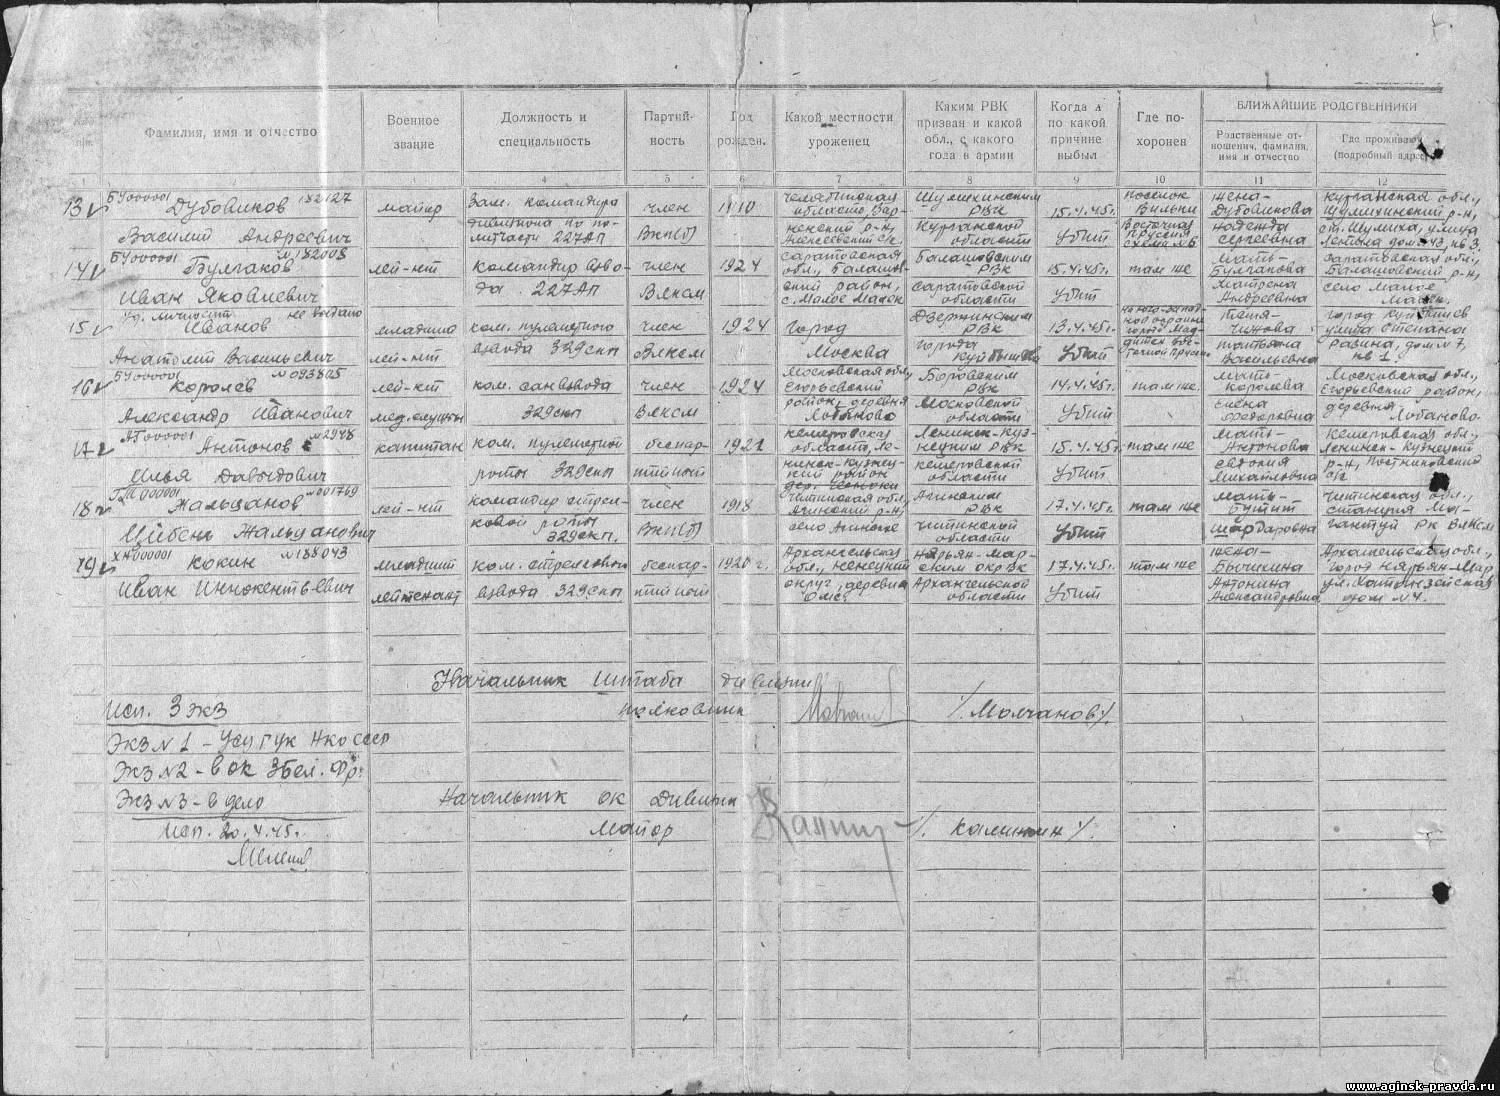 Фамилия, имя и отчество
Военное звание
Должность и специальность
Партий-ность
Год рожден.
Какой местности уроженец
Каким РВК призван и какой обл., с какого года в армии
Когда и по какой причине выбыл
Где по-хоронен
БЛИЖАЙШИЕ РОДСТВЕННИКИ
Родственные от-ношения, фамилия, имя и отчество
Где проживают (подробный адрес)
1 3 4 5 6 7 8 9 10 11 12
13 БУ000001 182127 Дубовиков Василий Андреевич
майор
Зам. командира дивизиона по по-литчасти 227АП
член ВКП(б)
1910
Челябинская область, Вар-ненский р-н, Алексеевский с/с.
Шумихинским РВК Курганской области
15.4.45г. Убит
поселок Вильки Восточная Пруссия схема №6
жена- Дубовикова Надежда Сергеевна
Курганская обл., Шумихинский р-н, ст. Шумиха, улица дом №43, кв 3,
14 БУ000001 №182008 Булгаков Иван Яковлевич
лей-нт
командир взво-да 227АП
член ВЛКСМ
1924
Саратовская обл., Балашов-ский район, с. Малое Мелик
Балашовским РВК Саратовской области
15.4.45г. Убит
там же
мать- Булгакова Матрена Андреевна
Саратовская обл., Балашовский р-н, село Малое Мелик.
15 Уд. личности не выдано Иванов Анатолий Васильевич
младший лей-нт
ком. пулеметного взвода 329сп
член ВЛКСМ
1924
город Москва
Дзержинским РВК города Куйбышева
13.4.45г. Убит
на юго-запад-ной окраине города Восточной Пруссии
тетя- Татьяна Васильевна
город Куйбышев улица Степана Разина, дом №7, кв 1.
16 БУ000001 №093805 Королев Александр Иванович
лей-нт мед. службы
ком. сан взвода 329сп
член ВЛКСМ
1924
Московская обл., Егорьевский район, деревня Лобаново
Боровским РВК Московской области
14.4.45г. Убит
там же.
мать- Королева Елена Федоровна
Московская обл., Егорьевский район, деревня Лобаново
17 АГ000001 №2948 Антонов Илья Давыдович
капитан
ком. пулеметной роты 329сп
беспар-тийный
1921
Кемеровская область, Ле-нинск-Кузнец-кий район
Ленинск-Куз-нецким РВК Кемеровской области
15.4.45г. Убит
там же
мать- Антонова Евдокия Михайловна
Кемеровская обл., Ленинск-Кузнецкий р-н, с/с
18 000001 №001769 Жальцанов Цибень Жальцанович
лей-нт
командир стрел-ковой роты 329сп.
член ВКП(б)
1918
Читинская обл., Агинский р-н, село Агинское
Агинским РВК Читинской области
17.4.45г. Убит
там же
мать- Бутит Шардаровна
Читинская обл., станция Мо-гойтуй РК ВЛКСМ
19 ХН000001 №188043 Кокин Иван Иннокентьевич
младший лейтенант
ком. стрелкового взвода 329сп
беспар-тийный
1920 г.
Архангельская обл., Ненецкий округ, деревня Ома
Нарьян-Мар-ским окрВК Архангельской области
17.4.45г. Убит
там же
жена- Бычихина Антонина Александровна
Архангельская обл., город Нарьян-Мар ул. Хатанзейская дом №4.
Начальник Штаба дивизии
полковник /Молчанов/.
Исп. 3 экз
Экз №1 - Усу ГУК НКО СССР
Экз №2 - в ОК 3 Бел. Фр.
Экз №3 - в дело
Исп. 20.4.45г.
Начальник ОК дивизии
майор /Калинкин/.
www.aginsk-pravda.ru